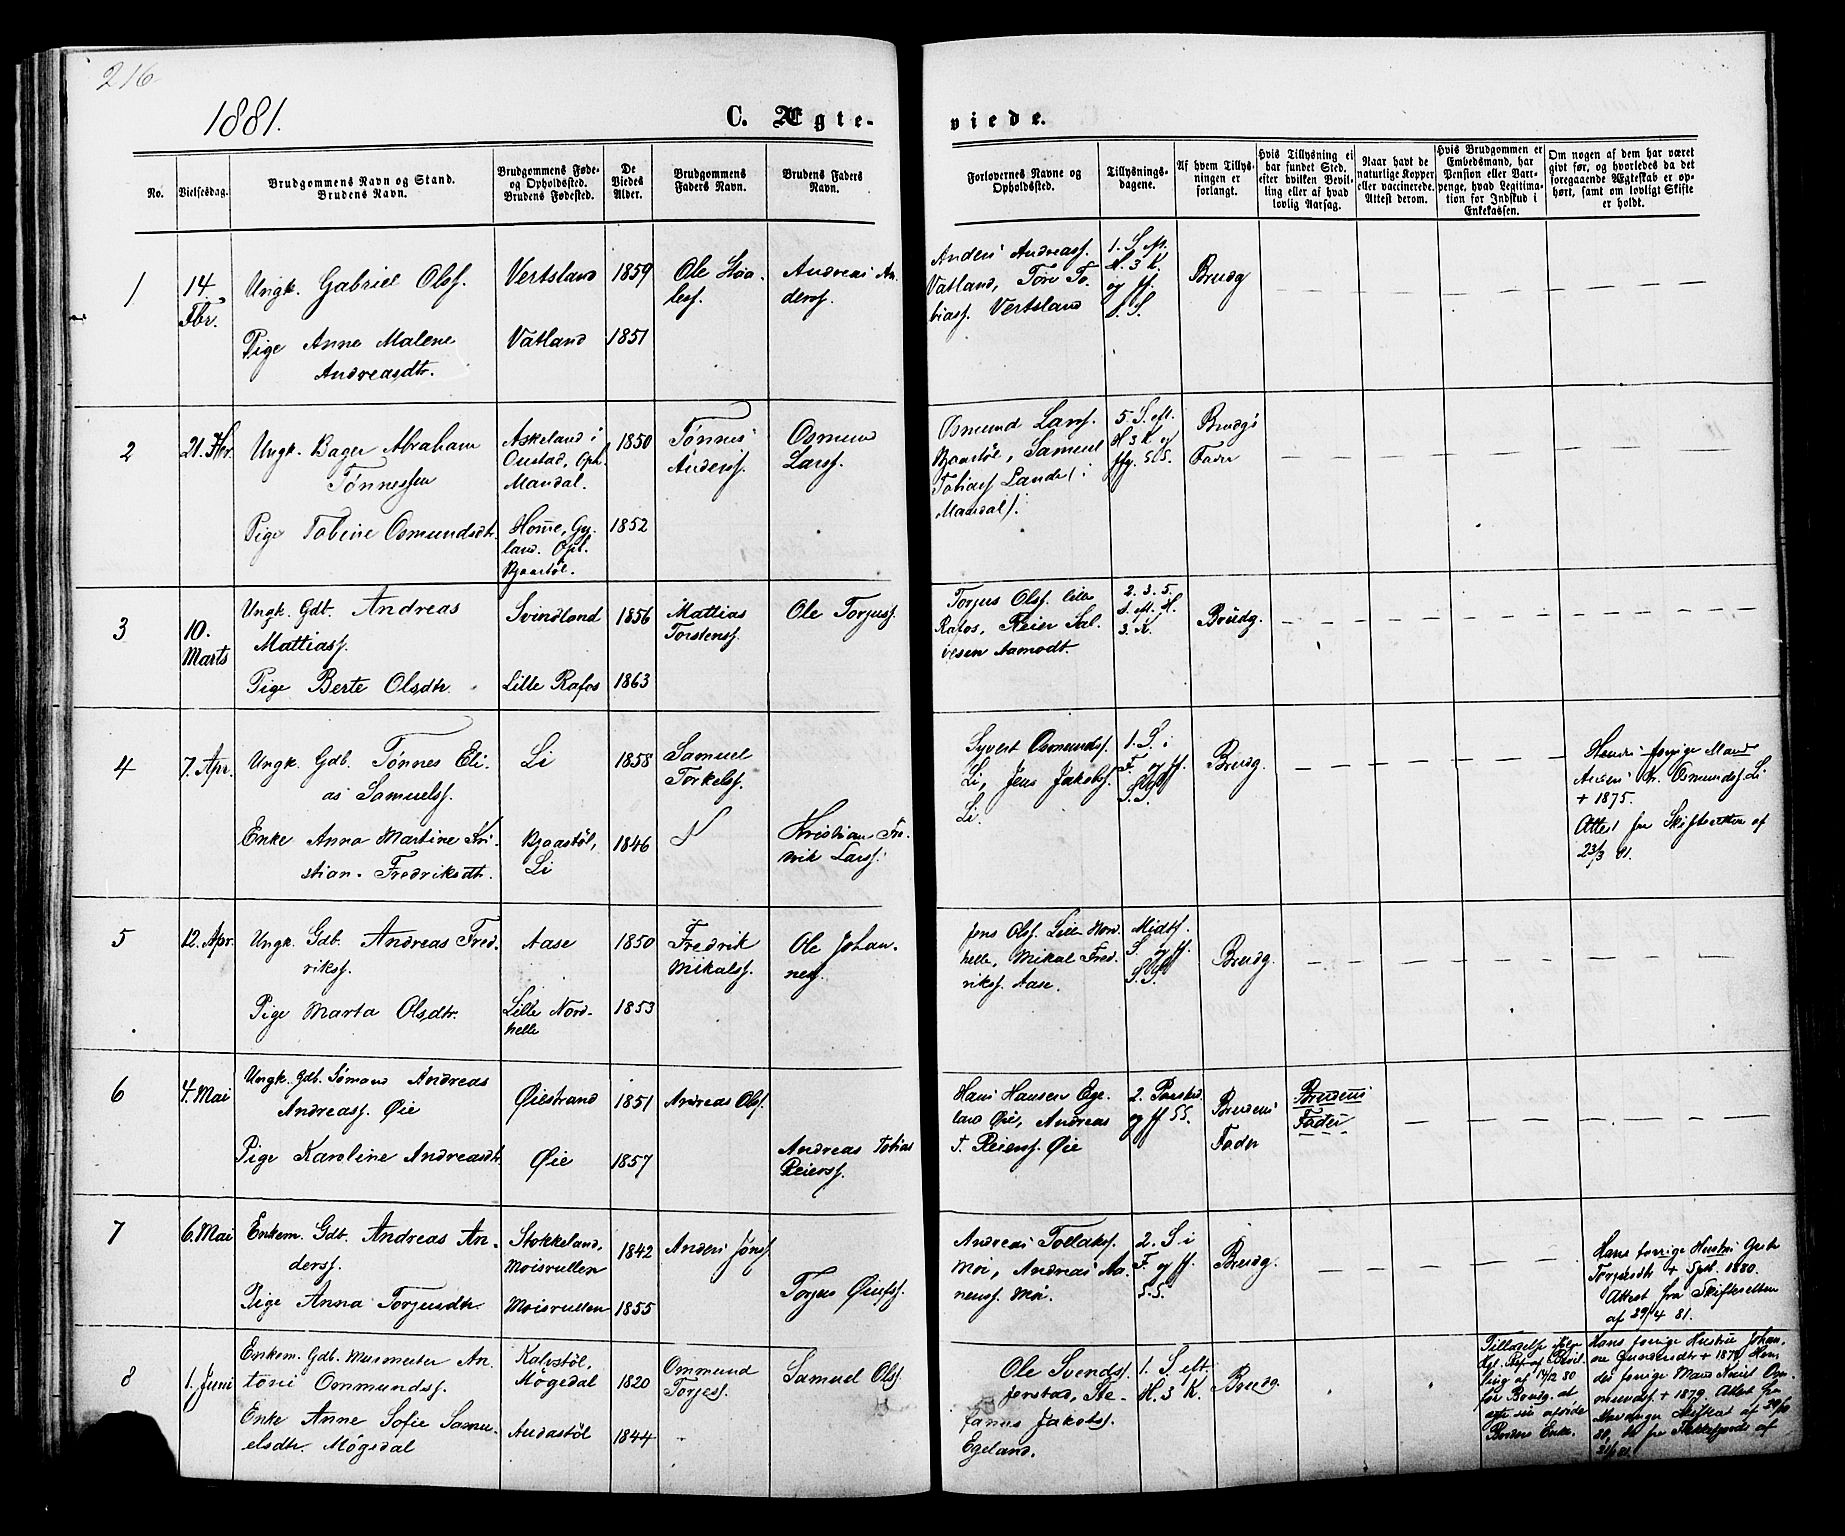 216
1881.
C. Ægte-
viede.
No.
Vielsesdag.
Brudgommens Navn og Stand.
Brudens Navn.
Brudgommens Føde-
og Opholdssted.
Brudens Fødested.
De
Viedes
Alder.
Brudgommens
Faders Navn.
Brudens Faders
Navn.
Forlovernes Navne og
Opholdssted.
Tillysnings-
dagene.
Af hvem Tillys-
ningen er
forlangt.
Hvis Tillysning ei
har fundet Sted,
efter hvilken Bevil-
ling eller af hvad
lovlig Aarsag.
Naar havt de
naturlige Kopper
eller vaccinerede.
Attest derom.
Hvis Brudgommen er
Embedsmand, har
Pension eller Vart-
penge, hvad Legitima-
tion for Indskud i
Enkekassen.
Om nogen af dem har været
givt før, og hvorledes da det
foregaaende Ægteskab er op-
hørt, samt om lovligt Skifte
er holdt.
1
14.
Fbr.
Ungk. Gabriel Olsf.
Pige Anne Malene
Andreasdtr.
Vertsland
Vatland
1859
1851
Ole
lesf.
Andreas An-
dersf.
Anders Andreasf.
Vatland, Tore To-
biasf. Vertsland
1. S. M.
H. 3 K.
og ff.
S. S.
Brudg
2
21. Fbr.
Ungk. Bager Abraham
Tønnessen
Pige Tobine Osmundsdtr.
Askeland i
Oustad, Oph.
Mandal.
Home, Gy-
land. Oph.
Bjaastøl.
1850
1852
Tønnes
Andersf.
Osmund
Larsf.
Osmund Larsf.
Bjaastøl, Samuel
Tobiasf Lande (i
Mandal).
5. S. M.
H. 3 K og
ffg. SS.
Brudgs
Fader
3
10.
Marts
Ungk. Gdb. Andreas
Mattiasf.
Pige Berte Olsdtr.
Svindland
Lille Rafos
1856
1863
Mattias
Torstensf.
Ole Torjusf.
Torjus Olsf. lille
Rafos, Reier Sal-
vesen Aamodt.
2. 3. 5.
S. M. H.
3. K.
Brudg.
4
7. Apr.
Ungk. Gdb. Tønnes Eli-
as Samuelsf.
Enke Anna Martine Kri-
stian-Fredriksdtr.
Li
Bjaastøl,
Li
1858
1846
Samuel
Torkelsf.
Kristian Fre-
drik Larsf.
Syvert Osmundsf.
Li, Jens Jakobsf.
Li.
1. S. i
F. og ff.
S. S.
Brudg.
Hendes forrige Mand
Osmundsf. Li
+ 1875.
Attest fra Skifteretten af
23/3 81.
5
12. Apr.
Ungk. Gdb. Andreas Fred-
riksf.
Pige Marta Olsdtr.
Aase
Lille Nord-
helle
1850
1853
Fredrik
Mikalsf.
Ole Johan-
nesf.
Jens Olsf. Lille Nord-
helle, Mikal Fred-
riksf. Aase.
Midtf.
S. og ff.
S. S.
Brudg.
6
4. Mai
Ungk. Gdb. Sømand Andreas
Andreasf. Øie
Pige Karoline Andreasdtr.
Øiestrand
Øie
1851
1857
Andreas Olsf.
Andreas Tobias
Reiersf.
Hans Hansen Ege-
land Øie, Andreas
T. Reiersf. Øie
2. Paaskd.
og ff SS.
Brudens
Fader
Brudens
Fader
7
6. Mai
Enkem. Gdb. Andreas An-
dersf.
Pige Anna Torjusdtr.
Stokkeland,
Moisrullen
Moisrullen
1842
1855
Anders Jonsf
Torjus
Andreas Tollaksf.
Moi, Andreas Aa-
nensf. Moi.
2. S. i
F. og ff.
S. S.
Brudg.
Hans forrige Hustru
Torjusdtr + Spt. 1880.
Attest fra Skifteretten
af 29/4 81.
8
1. Juni
Enkem. Gdb. Murmester An-
toni Ommundsf.
Enke Anne Sofie Samu-
elsdtr. Møgedal
Kalvstøl,
Møgedal
Audastøl
1820
1844
Ommund
Torjesf.
Samuel Olsf.
Ole Svendsf.
Jerstad, Ste-
fanus Jakobsf.
Egeland.
1. S. M.
H. 3 K.
Brudg.
Tilladelse
Kgl.
af 14/2 80
for Brudg. at
ægte sin afdøde
Broders Enke.
Hans forrige Hustru Johan-
ne Gundersdtr + 1879. Hen-
des forrige Mand Knut Om-
mundsf + 1879. Attest fra